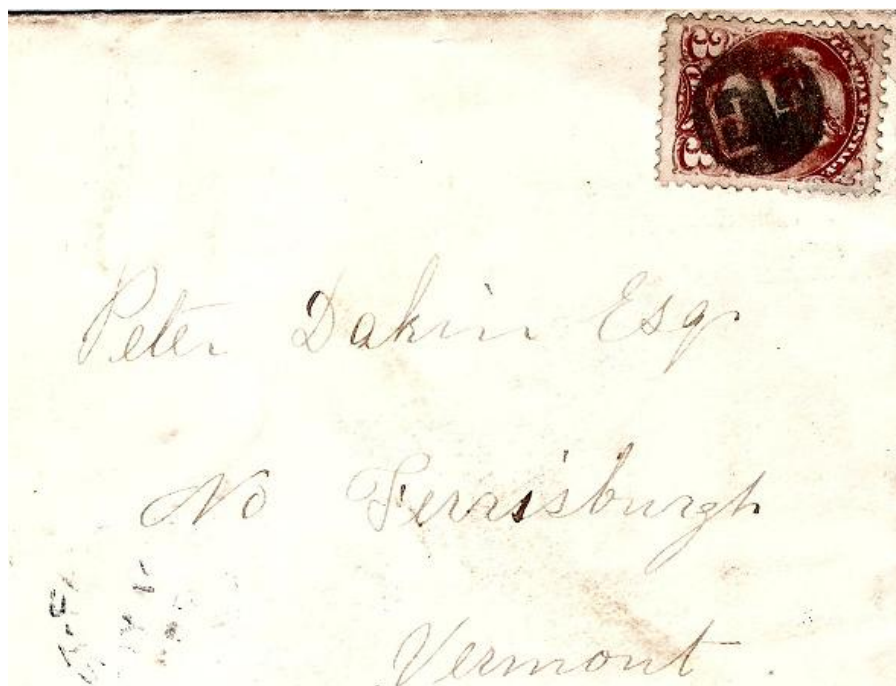 CANADA POSTAGE
3 3
Peter Dakin Esq
No Ferrisburgh
Vermont